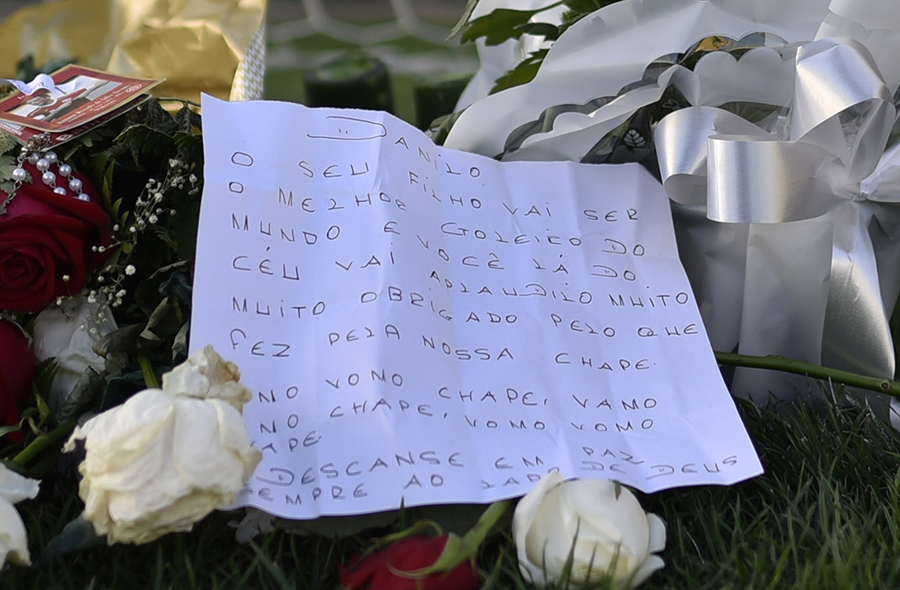 DANILO.
O SEU FILHO VAI SER
O MELHOR GOLEIRO DO
MUNDO E VOCÊ LÁ DO
CÉU VAI APLAUDILO MUITO
MUITO OBRIGADO PELO QUE
FEZ PELA NOSSA CHAPE.
NO VOMO CHAPE, VAMO
NO CHAPE, VOMO VOMO
APE.
DESCANSE EM PAZ
SEMPRE AO LADO DE DEUS